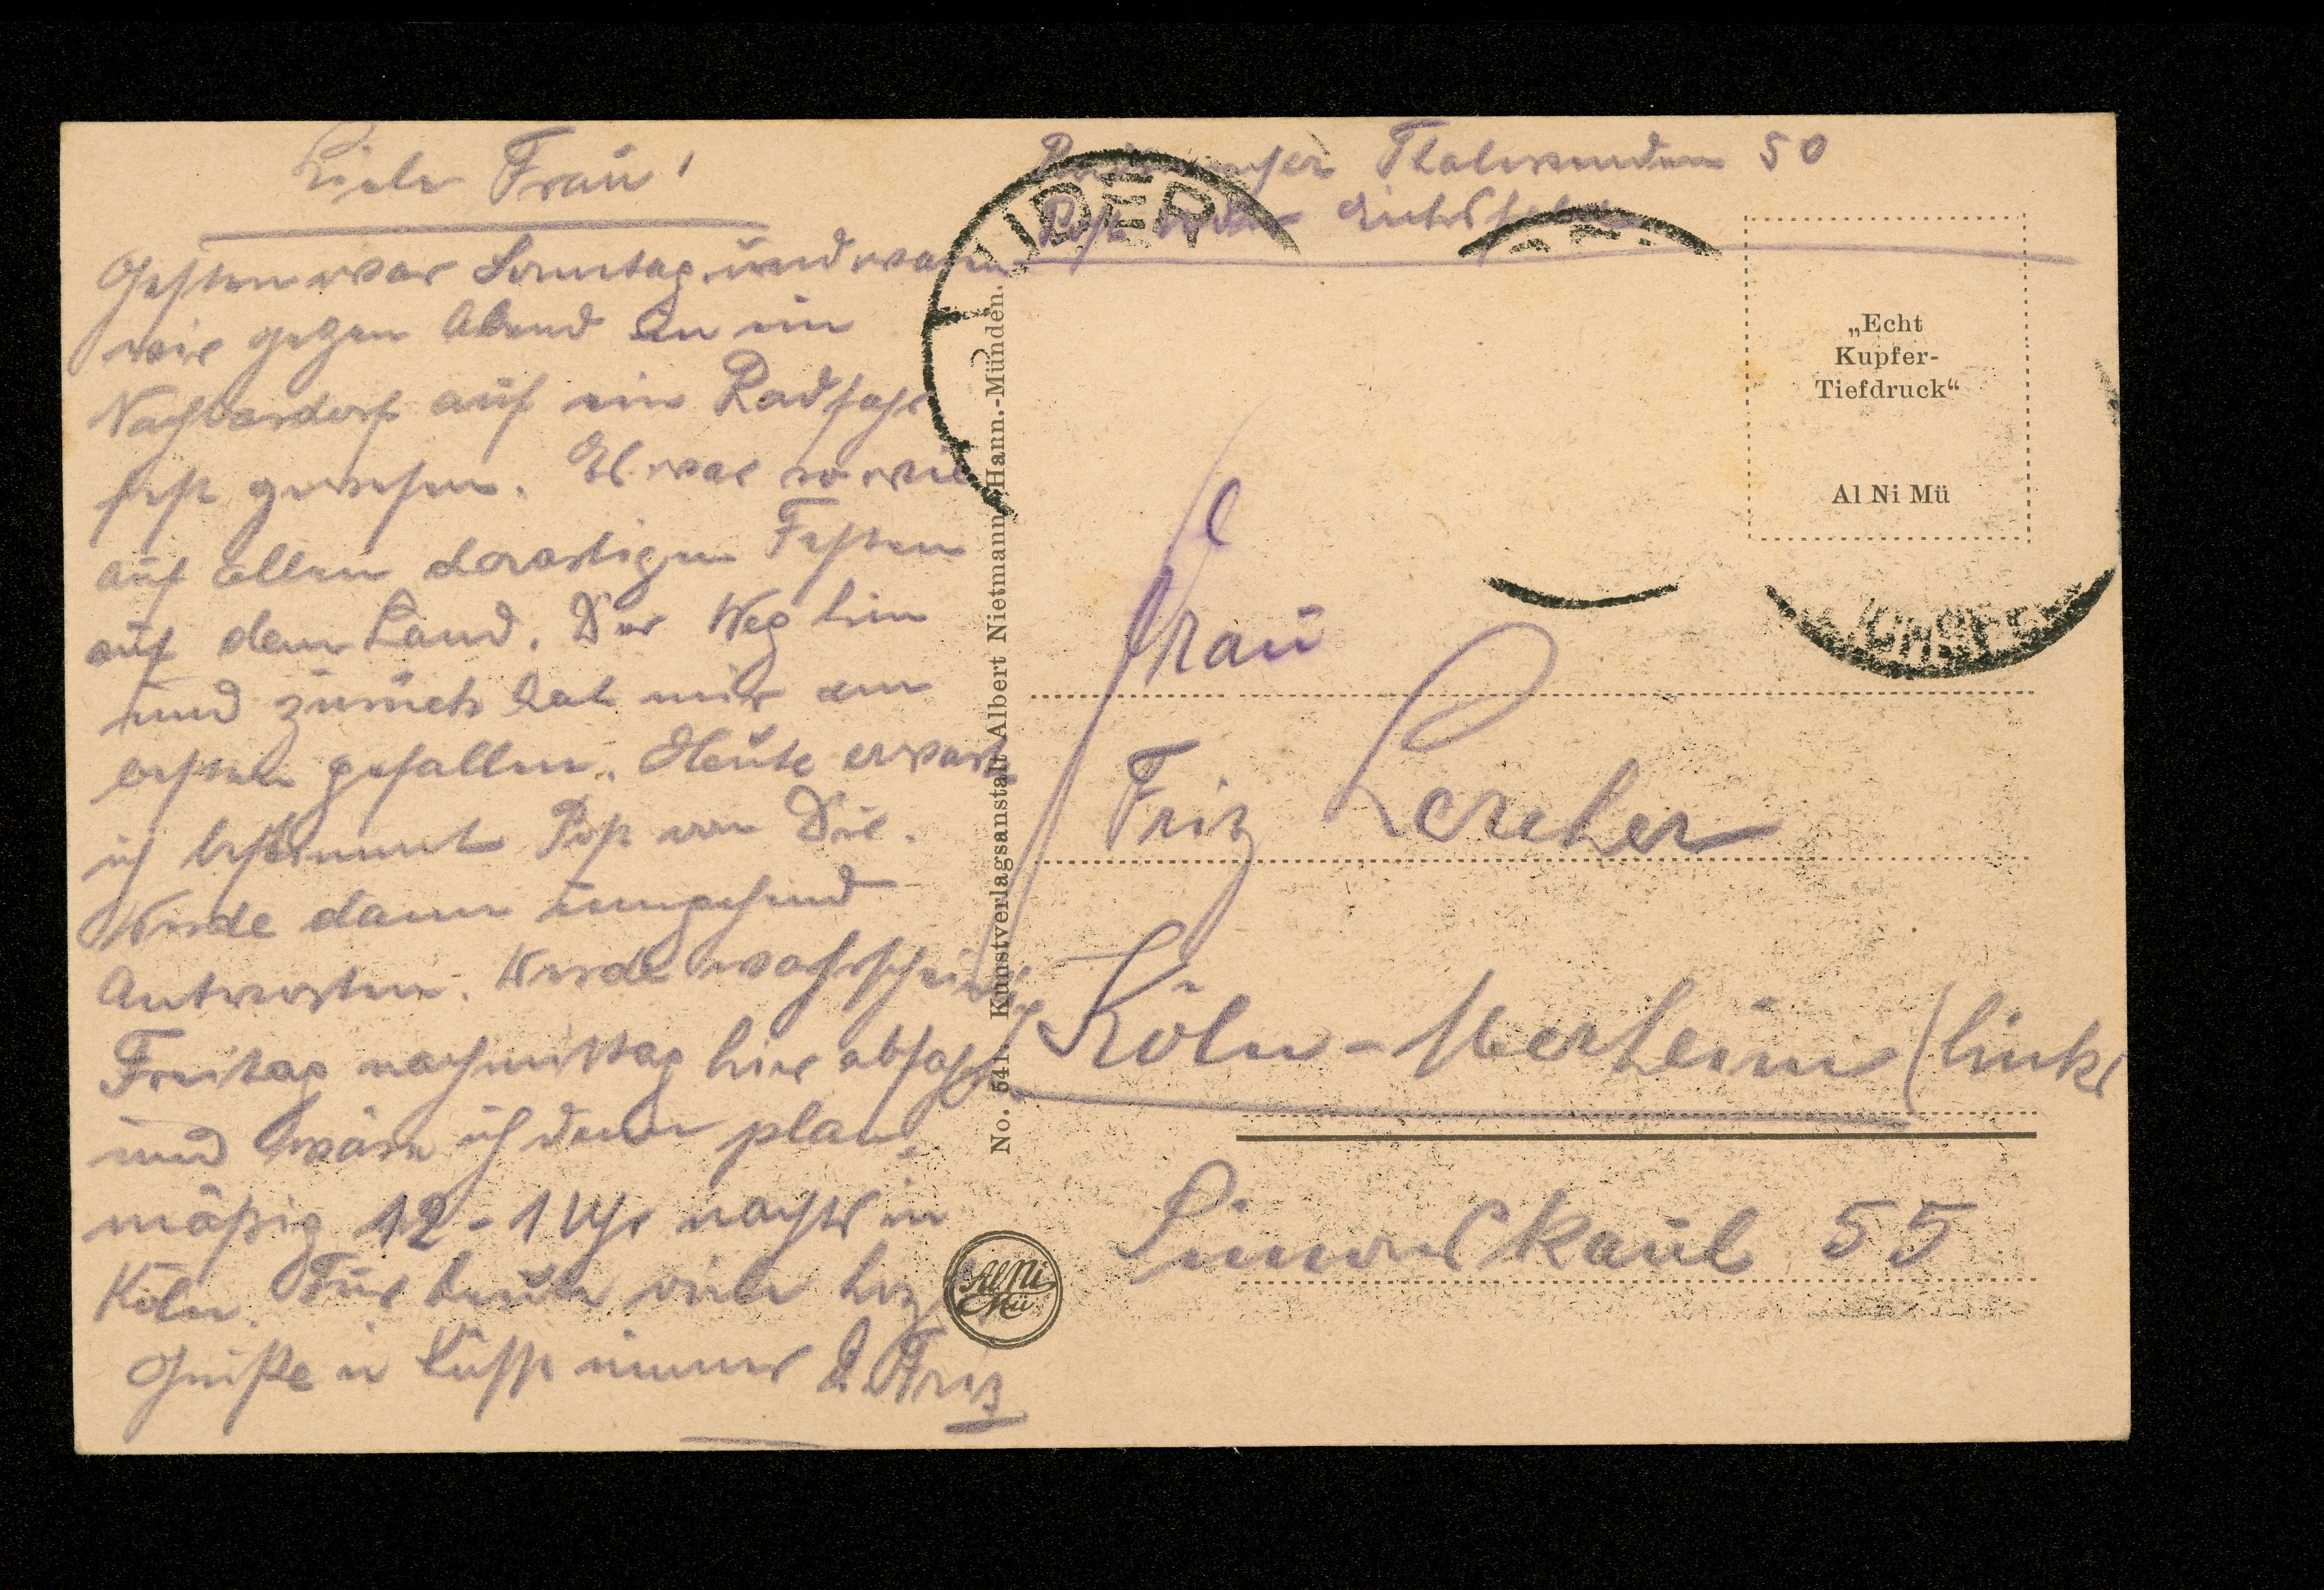 Liebe Frau!
Gestern war Sonntag und waren
wir gegen Abend in ein
Nachbardorf auf ein Radfahr
fest gewesen. Es war so wie
auf allen derartigen Festen
auf dem Land. Der Weg hin
und zurück hat mir am
besten gefallen. Heute erwarte
ich bestimmt Post von Dir.
Werde dann umgehend
Antworten. Werde wahrscheinlich
Freitag nachmittag hier abfahren
und wäre ich dann plan-
mäßig 12-1 Uhr nachts in
Köln. Für heute viele herz
Grüße u Küsse immer D. Fritz
No. 541. Kunstverlagsanstalt Albert Nietmann, Hann.-Münden.
Al Ni Mü
Thalwenden 50
Post Eichsfeld
UDER
„Echt
Kupfer-
Tiefdruck“
Al Ni Mü
Frau
Friz Lercher
Köln-Merheim (links
Simonskaul 55